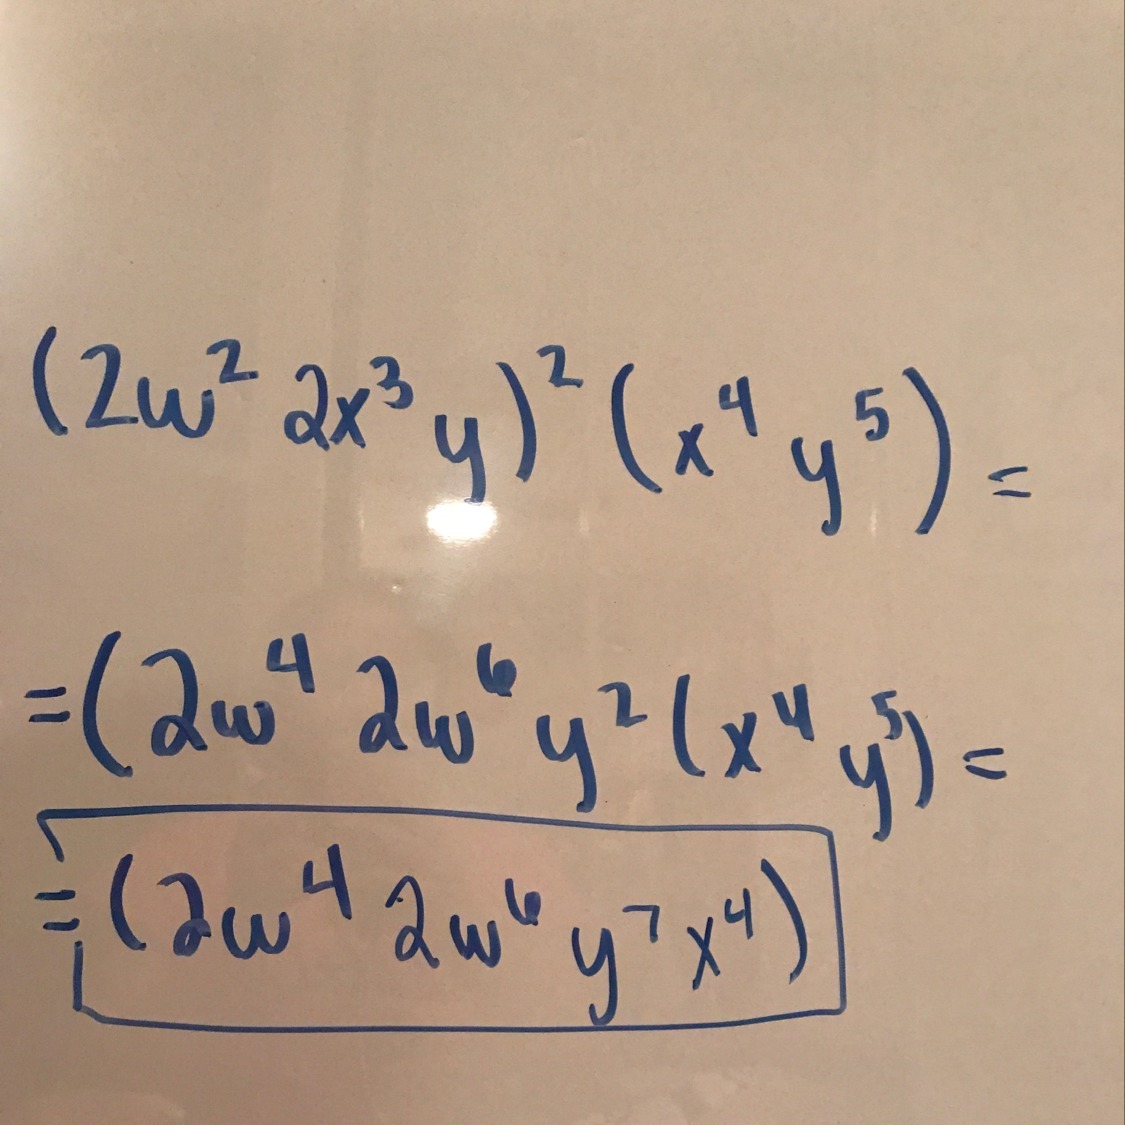 (2w² 2x³ y)² (x⁴ y⁵) =
= (2w⁴ 2w⁶ y² (x⁴ y⁵) =
= (2w⁴ 2w⁶ y⁷ x⁴)